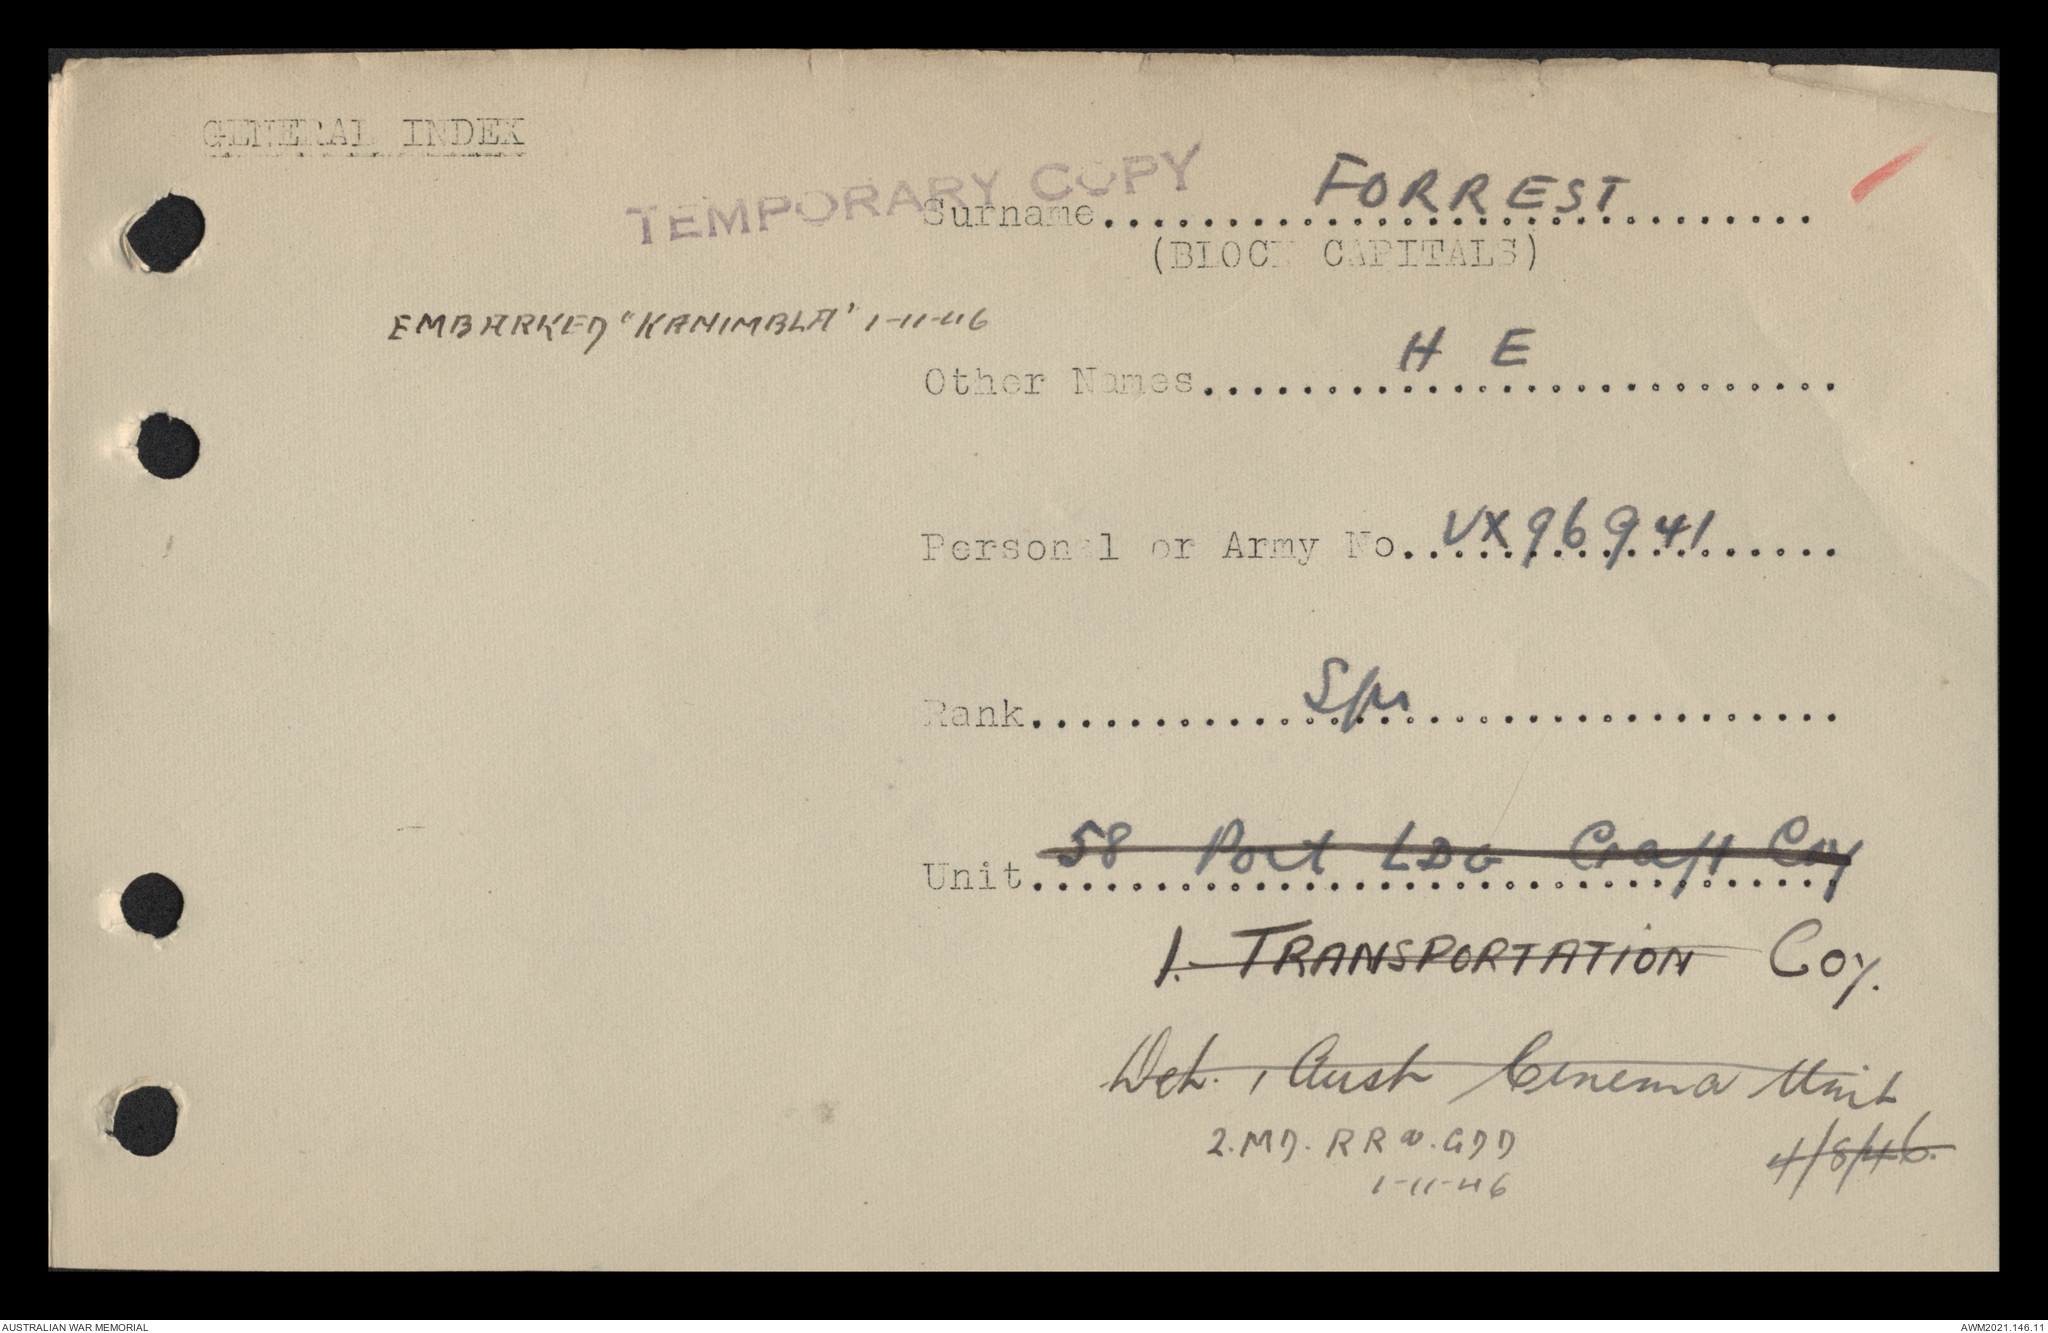 GENERAL INDEX
TEMPORARY COPY
Surname FORREST
(BLOCK CAPITALS)
EMBARKED "KANIMBLA" 1-11-46
Other Names H E
Personal or Army No. VX96941
Rank Spr
Unit 58 Port LDG Craft Coy
1. TRANSPORTATION Coy.
Det. 1 Aust Cinema Unit
4/8/46.
2. MD. R R GDD
1-11-46
AUSTRALIAN WAR MEMORIAL
AWM2021.146.11